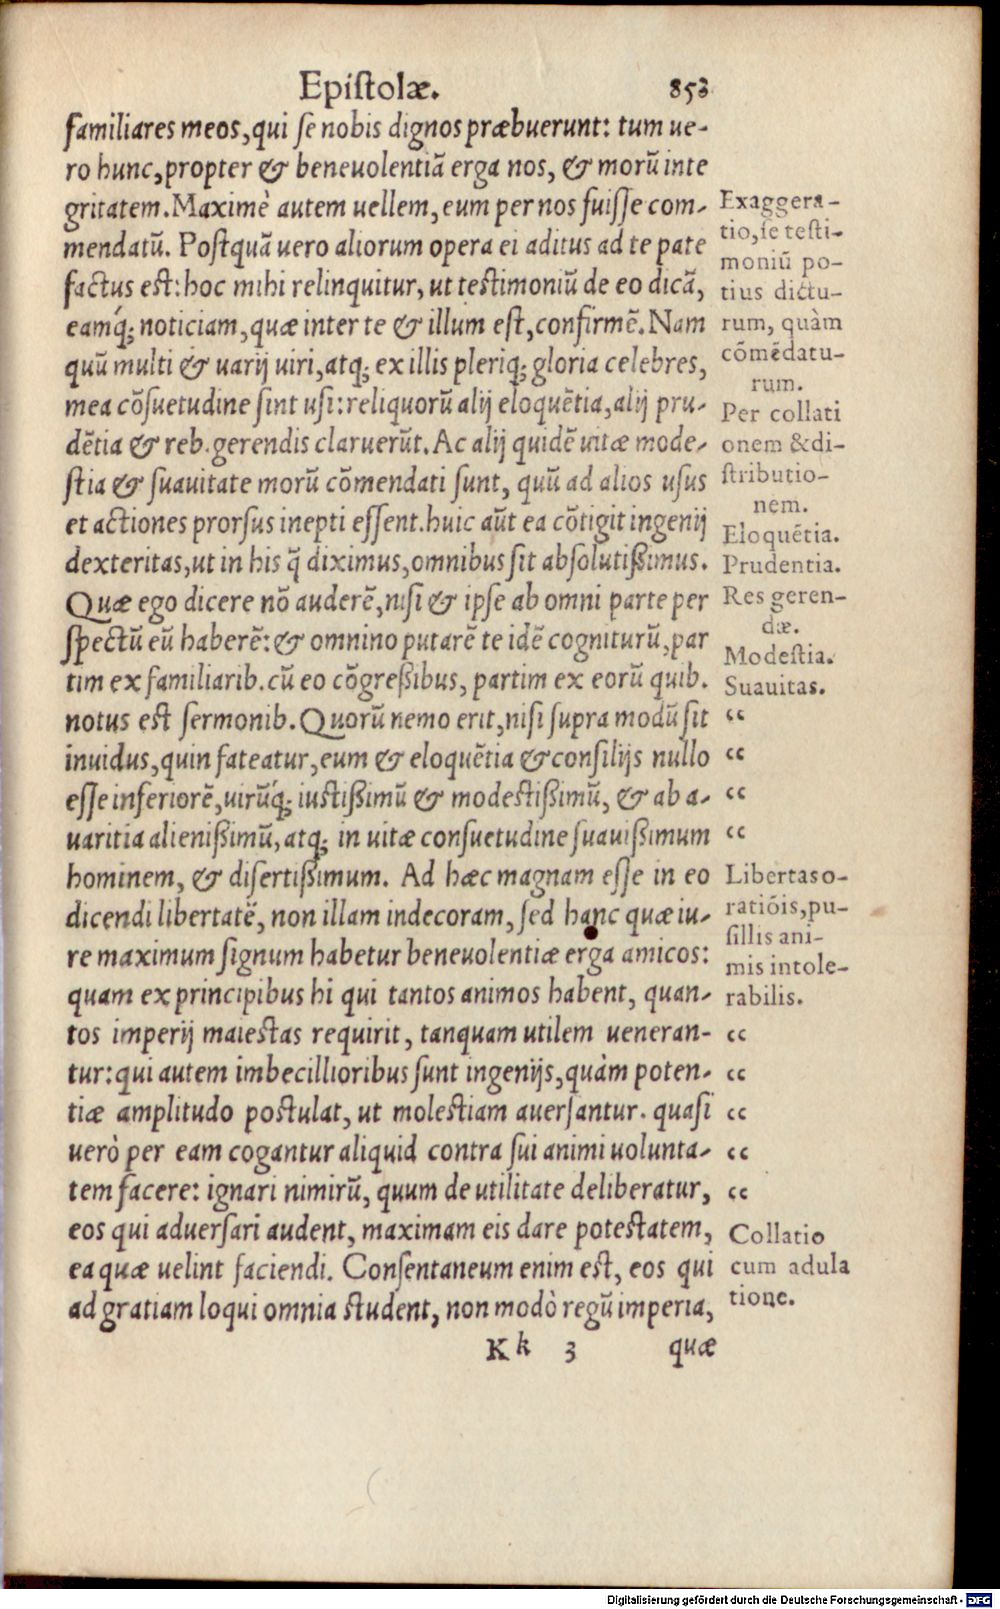 Epistolæ. 853
familiares meos, qui se nobis dignos præbuerunt: tum ue-
ro hunc, propter & beneuolentiã erga nos, & morũ inte
gritatem. Maximè autem uellem, eum per nos fuisse com-
mendatũ. Postquã uero aliorum opera ei aditus ad te pate
factus est: hoc mihi relinquitur, ut testimoniũ de eo dicã,
eamq́; noticiam, quæ inter te & illum est, confirmẽ. Nam
quũ multi & uarij uiri, atq; ex illis pleriq; gloria celebres,
mea cõsuetudine sint usi: reliquorũ alij eloquẽtia, alij pru-
dẽtia & reb. gerendis claruerũt. Ac alij quidẽ uitæ mode-
stia & suauitate morũ cõmendati sunt, quũ ad alios usus
et actiones prorsus inepti essent. huic aũt ea cõtigit ingenij
dexteritas, ut in his q̃ diximus, omnibus sit absolutißimus.
Quæ ego dicere nõ auderẽ, nisi & ipse ab omni parte per
spectũ eũ haberẽ: & omnino putarẽ te idẽ cogniturũ, par
tim ex familiarib. cũ eo cõgreßibus, partim ex eorũ quib.
notus est sermonib. Quorũ nemo erit, nisi supra modũ sit
inuidus, quin fateatur, eum & eloquẽtia & consilijs nullo
esse inferiorẽ, uirũq́; iustißimũ & modestißimũ, & ab a-
uaritia alienißimũ, atq; in uitæ consuetudine suauißimum
hominem, & disertißimum. Ad hæc magnam esse in eo
dicendi libertatẽ, non illam indecoram, sed hanc quæ iu-
re maximum signum habetur beneuolentiæ erga amicos:
quam ex principibus hi qui tantos animos habent, quan-
tos imperij maiestas requirit, tanquam utilem ueneran-
tur: qui autem imbecillioribus sunt ingenijs, quàm poten-
tiæ amplitudo postulat, ut molestiam auersantur. quasi
uerò per eam cogantur aliquid contra sui animi uolunta-
tem facere: ignari nimirũ, quum de utilitate deliberatur,
eos qui aduersari audent, maximam eis dare potestatem,
ea quæ uelint faciendi. Consentaneum enim est, eos qui
ad gratiam loqui omnia student, non modò regũ imperia,
Kk 3 quæ
Exaggera-
tio, se testi-
moniũ po-
tius dictu-
rum, quàm
cõmẽdatu-
rum.
Per collati
onem & di-
stributio-
nem.
Eloquẽtia.
Prudentia.
Res geren-
dæ.
Modestia.
Suauitas.
“
“
“
“
Libertas o-
ratiõis, pu-
sillis ani-
mis intole-
rabilis.
“
“
“
“
“
Collatio
cum adula
tione.
Digitalisierung gefördert durch die Deutsche Forschungsgemeinschaft - DFG